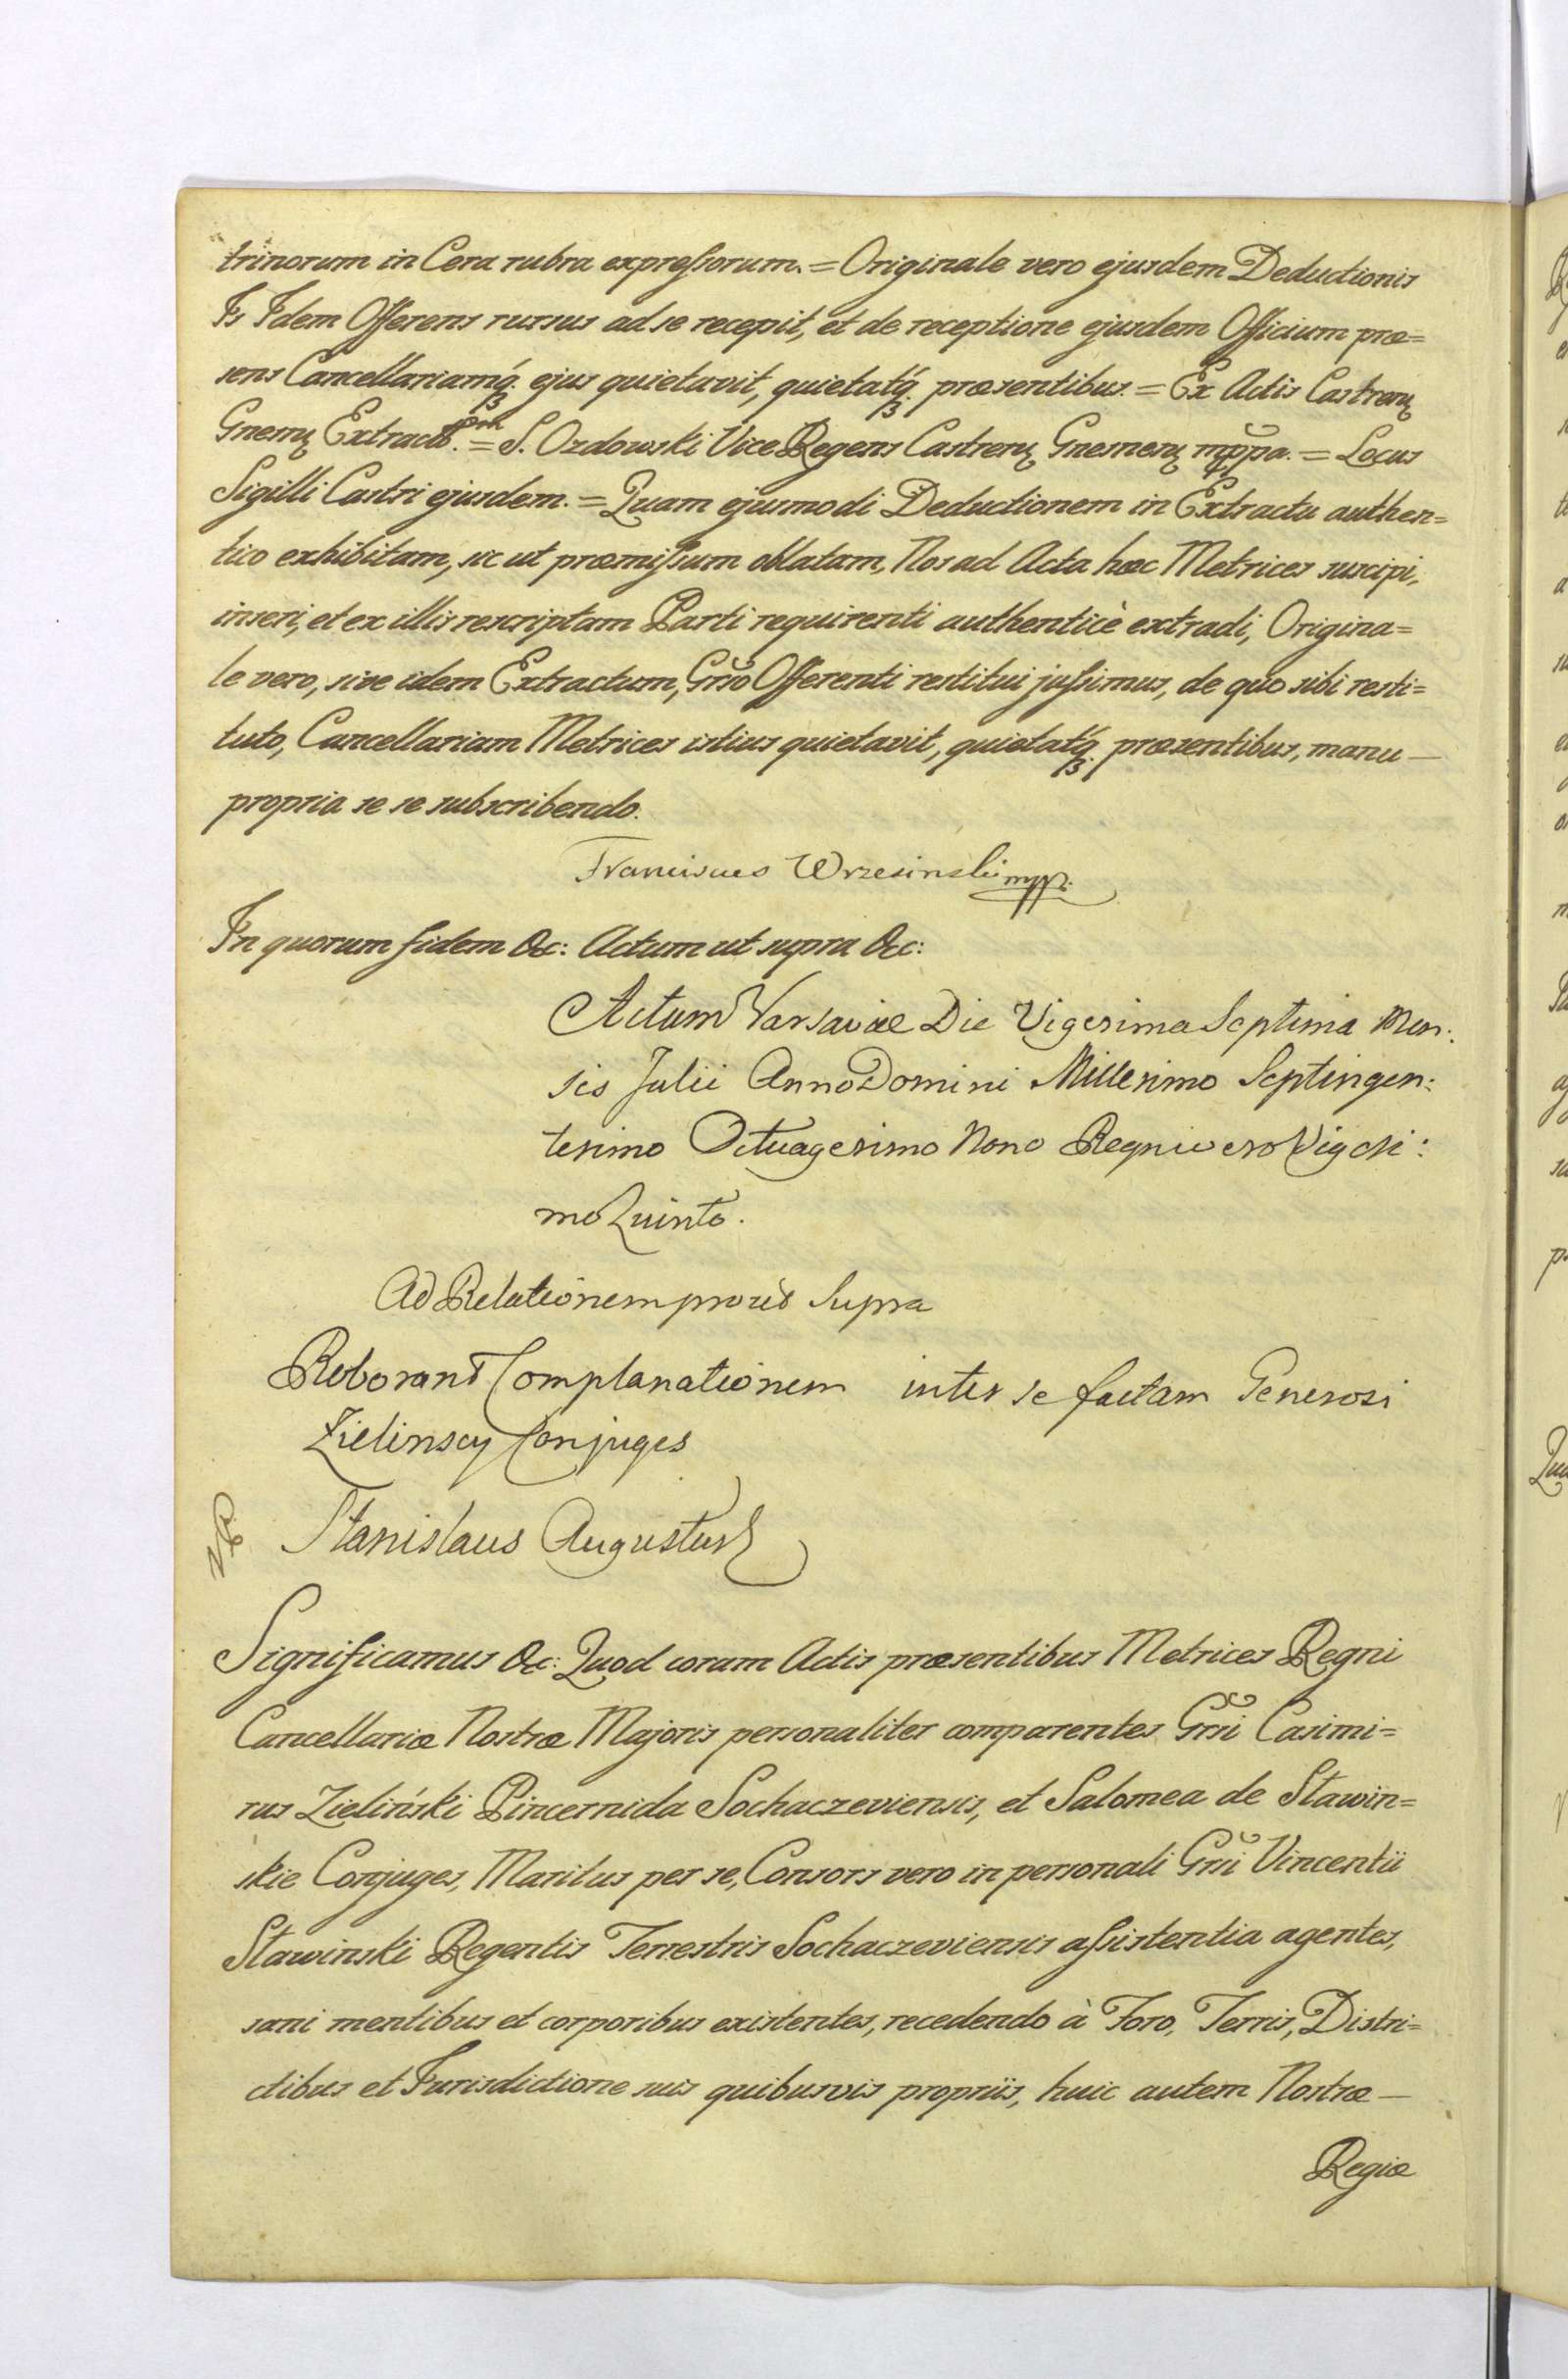 trinorum in Cera rubra expressorum. = Originale vero ejusdem Deductionis
Is Idem Offerens rursus ad se recepit, et de receptione ejusdem Officium præ=
sens Cancellariamq́ꝫ ejus quietavit, quietatq́ꝫ præsentibus. = Ex Actis Castren̄
Gnesn̄ Extract. = S. Ozdowski Vice Regens Castren̄ Gnesnen̄ mppa. = Locus
Sigilli Castri ejusdem. = Quam ejusmodi Deductionem in Extractu authen=
tico exhibitam, sic ut præmissum oblatam, Nos ad Acta hæc Metrices suscipi,
inseri, et ex illis rescriptam Parti requirenti authenticè extradi, Origina=
le vero, sive idem Extractum, Gr̃so Offerenti restitui jussimus, de quo sibi resti=
tuto, Cancellariam Metrices istius quietavit, quietatq́ꝫ præsentibus, manu —
propria se se subscribendo.
Franciscus Wrzesinski mpp.
In quorum fidem &c: Actum ut supra &c:
Actum Varsaviæ Die Vigesima Septima Men:
sis Julii Anno Domini Millesimo Septingen:
tesimo Octuagesimo Nono Regni vero Vigesi:
mo Quinto.
Ad Relationem prout Supra
Roborant Complanationem inter se factam Generosi
Zielinscy Conjuges
Stanislaus Augustus
Significamus &c: Quod coram Actis præsentibus Metrices Regni
Cancellariæ Nostræ Majoris personaliter comparentes Gr̃si Casimi=
rus Zieliński Pincernida Sochaczeviensis, et Salomea de Stawin=
skie Conjuges, Maritus per se, Consors vero in personali Gr̃si Vincentii
Stawinski Regentis Terrestris Sochaczeviensis assistentia agentes,
sani mentibus et corporibus existentes, recedendo à Foro, Terris, Distri=
ctibus et Jurisdictione suis quibusvis propriis, huic autem Nostræ —
Regiæ